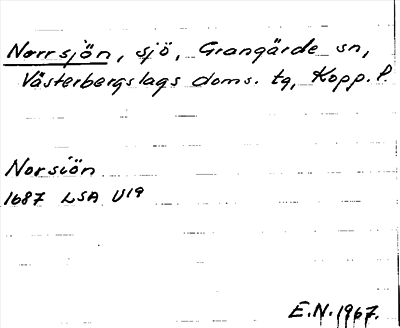 Norrsjön, sjö, Grangärde sn,
Västerbergslags doms. tg, Kopp. l.
Norsiön
1687 LSA U19
E.N. 1967.